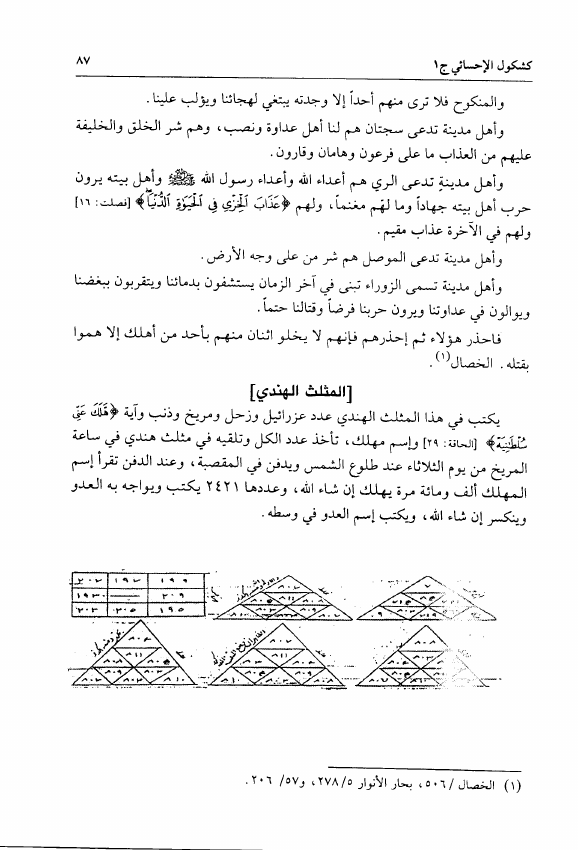 كشكول الإحسائي ج١
٨٧
والمنكوح فلا ترى منهم أحداً إلا وجدته يبتغي لهجائنا ويؤلب علينا.
وأهل مدينة تدعى سجتان هم لنا أهل عداوة ونصب، وهم شر الخلق والخليفة
عليهم من العذاب ما على فرعون وهامان وقارون.
وأهل مدينةٍ تدعى الري هم أعداء الله وأعداء رسول الله ﷺ وأهل بيته يرون
حرب أهل بيته جهاداً وما لهُم مغنماً، ولهم ﴿عَذَابَ ٱلْخِزْيِ فِي ٱلْحَيَوٰةِ ٱلدُّنْيَا﴾ [فصلت: ١٦]
ولهم في الآخرة عذاب مقيم.
وأهل مدينة تدعى الموصل هم شر من على وجه الأرض.
وأهل مدينة تسمى الزوراء تبنى في آخر الزمان يستشفون بدمائنا ويتقربون ببغضنا
ويوالون في عداوتنا ويرون حربنا فرضاً وقتالنا حتماً.
فاحذر هؤلاء ثم إحذرهم فإنهم لا يخلو اثنان منهم بأحد من أهلك إلا هموا
بقتله. الخصال(١).
[المثلث الهندي]
يكتب في هذا المثلث الهندي عدد عزرائيل وزحل ومريخ وذنب وآية ﴿هَلَكَ عَنِّي
سُلْطَانِيَهْ﴾ [الحاقة: ٢٩] وإسم مهلك، تأخذ عدد الكل وتلقيه في مثلث هندي في ساعة
المريخ من يوم الثلاثاء عند طلوع الشمس ويدفن في المقصبة، وعند الدفن تقرأ إسم
المهلك ألف ومائة مرة يهلك إن شاء الله، وعددها ٢٤٢١ يكتب ويواجه به العدو
وينكسر إن شاء الله، ويكتب إسم العدو في وسطه.
(١) الخصال /٥٠٦، بحار الأنوار ٢٧٨/٥، و٥٧/ ٢٠٦.